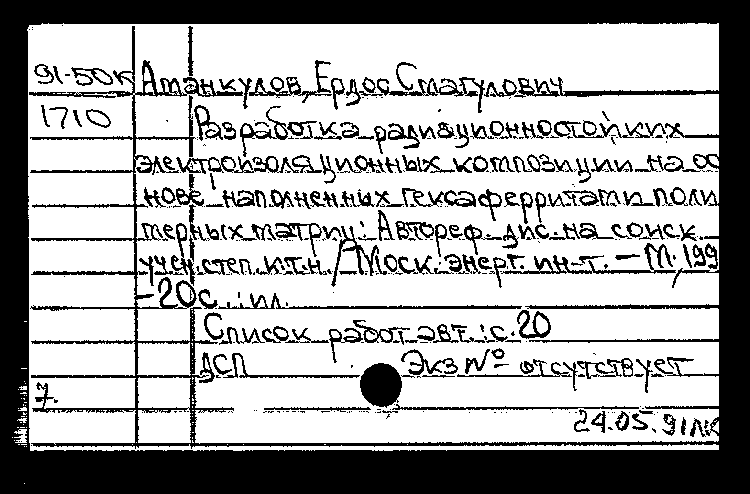 91-50к Атанкулов, Ердос Смагулович
1710 Разработка радиационностойких
электроизоляционных композиции на ос
нове наполненных гексаферритами поли
мерных матриц: Автореф. дис. на соиск.
учен. степ. к.т.н. / Моск. энерг. ин-т. – М., 199
-20с. : ил.
Список работ авт.: с. 20
ДСП Экз № отсутствует
7.
24.05.91 ЛК